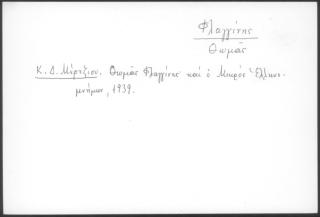 Φλαγγίνης
Θωμᾶς
Κ. Δ. Μέρτζιου. Θωμᾶς Φλαγγίνης καὶ ὁ Μικρὸς Ἑλληνο-
μνήμων, 1939.